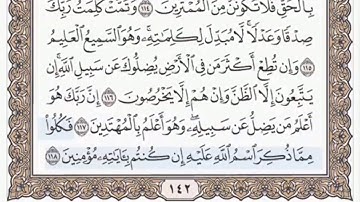 بِٱلْحَقِّ فَلَا تَكُونَنَّ مِنَ ٱلْمُمْتَرِينَ ١١٤ وَتَمَّتْ كَلِمَتُ رَبِّكَ
صِدْقًا وَعَدْلًا لَّا مُبَدِّلَ لِكَلِمَٰتِهِۦ وَهُوَ ٱلسَّمِيعُ ٱلْعَلِيمُ
١١٥ وَإِن تُطِعْ أَكْثَرَ مَن فِى ٱلْأَرْضِ يُضِلُّوكَ عَن سَبِيلِ ٱللَّهِ إِن
يَتَّبِعُونَ إِلَّا ٱلظَّنَّ وَإِنْ هُمْ إِلَّا يَخْرُصُونَ ١١٦ إِنَّ رَبَّكَ هُوَ
أَعْلَمُ مَن يَضِلُّ عَن سَبِيلِهِۦ وَهُوَ أَعْلَمُ بِٱلْمُهْتَدِينَ ١١٧ فَكُلُوا۟
مِمَّا ذُكِرَ ٱسْمُ ٱللَّهِ عَلَيْهِ إِن كُنتُم بِـَٔايَٰتِهِۦ مُؤْمِنِينَ ١١٨
١٤٢